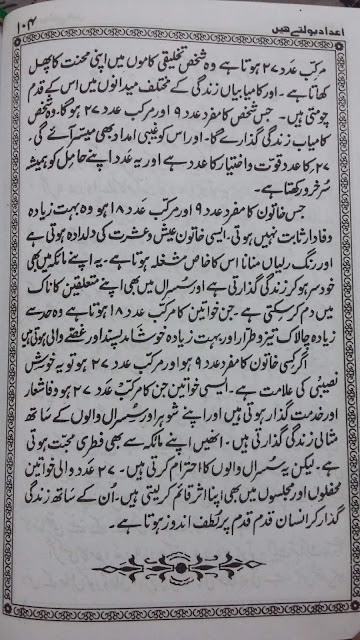 اعداد بولتے ہیں
۱۰۴
مرکب عدد ۲۷ ہوتا ہے وہ شخص تخلیقی کاموں میں اپنی محنت کا پھل
کھاتا ہے۔ اور کامیابیاں زندگی کے مختلف میدانوں میں اس کے قدم
چومتی ہیں۔ جس شخص کا مفرد عدد ۹ اور مرکب عدد ۲۷ ہوگا، وہ شخص
کامیاب زندگی گذارے گا۔ اور اس کو غیبی امداد بھی میسر آئے گی،
۲۷ کا عدد قوت واختیار کا عدد ہے اور یہ عدد اپنے حامل کو ہمیشہ
سُرخرو رکھتا ہے۔
جس خاتون کا مفرد عدد ۹ اور مرکب عدد ۱۸ ہو وہ بہت زیادہ
وفادار ثابت نہیں ہوتی، ایسی خاتون عیش وعشرت کی دلدادہ ہوتی ہے
اور رنگ رلیاں منانا اس کا خاص شغلہ ہوتا ہے۔ یہ اپنے مائکہ میں بھی
خودسر ہوکر زندگی گذارتی ہے اور سُسرال میں بھی اپنے متعلقین کا ناک
میں دم کرسکتی ہے۔ جن خواتین کا مرکب عدد ۱۸ ہوتا ہے وہ حد سے
زیادہ چالاک تیز وطرار اور بہت زیادہ خوشامد پسند اور غصّے والی ہوتی ہیں
اگر کسی خاتون کا مفرد عدد ۹ ہو اور مرکب عدد ۲۷ ہو تو یہ خوش
نصیبی کی علامت ہے۔ ایسی خواتین جن کا مرکب عدد ۲۷ ہو وفا شعار
اور خدمت گذار ہوتی ہیں اور اپنے شوہر اور سُسرال والوں کے ساتھ
مثالی زندگی گذارتی ہیں۔ انھیں اپنے مائکہ سے بھی فطری محبت ہوتی
ہے۔ لیکن یہ سُسرال والوں کا احترام کرتی ہیں۔ ۲۷ عدد والی خواتین
محفلوں اور مجلسوں میں بھی اپنا اثر قائم کرلیتی ہیں۔ اُن کے ساتھ زندگی
گذار کر انسان قدم قدم پر لطف اندوز ہوتا ہے۔